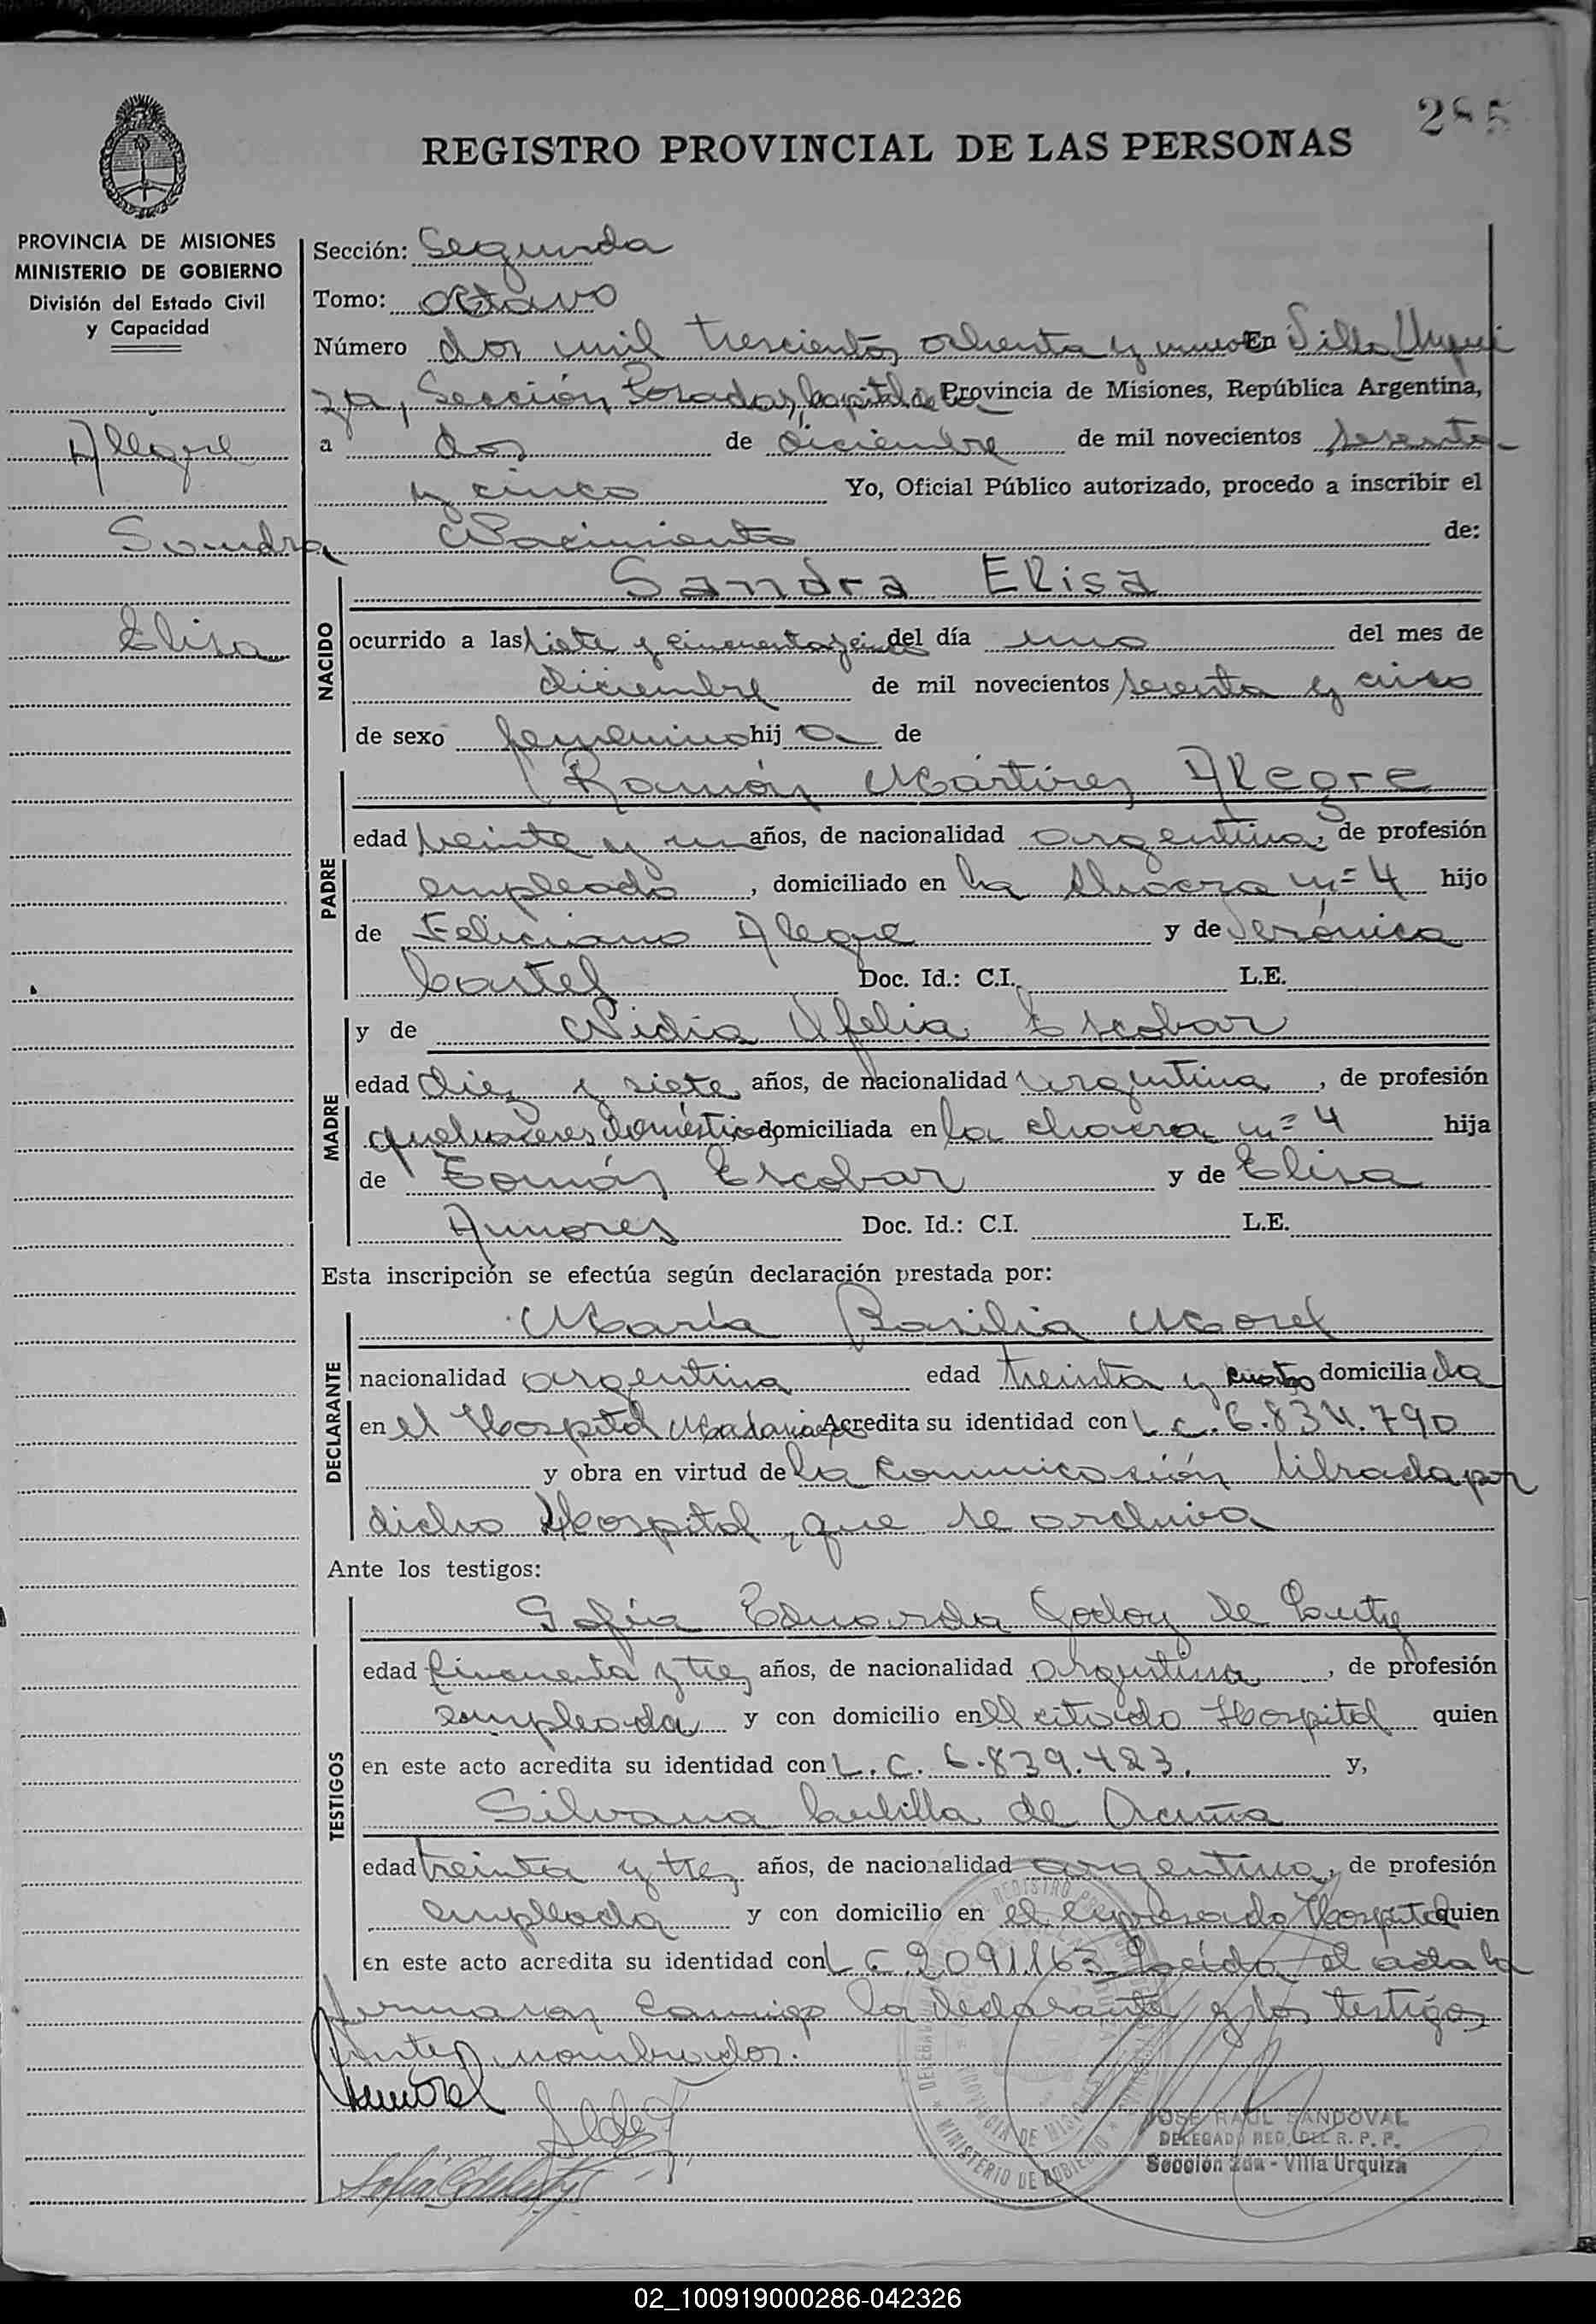 285
REGISTRO PROVINCIAL DE LAS PERSONAS
PROVINCIA DE MISIONES
MINISTERIO DE GOBIERNO
División del Estado Civil
y Capacidad
Alegre
Sandra
Elisa
Sección: Segunda
Tomo: Octavo
Número dos mil trescientos ochenta y nueve En Villa Urqui
za, Sección Posadas, Capital de la Provincia de Misiones, República Argentina,
a dos de diciembre de mil novecientos sesenta
y cinco Yo, Oficial Público autorizado, procedo a inscribir el
Nacimiento de:
NACIDO
Sandra Elisa
ocurrido a las siete y cincuenta y cinco del día uno del mes de
diciembre de mil novecientos sesenta y cinco
de sexo femenino hij a de
PADRE
Ramón Mártires Alegre
edad veinte y un años, de nacionalidad argentina, de profesión
empleado, domiciliado en la chacra nº 4 hijo
de Feliciano Alegre y de Verónica
Doc. Id.: C.I. L.E.
MADRE
y de Nidia Ofelia Escobar
edad diez y siete años, de nacionalidad argentina, de profesión
quehaceres domésticos domiciliada en la chacra nº 4 hija
de Tomás Escobar y de Elisa
Doc. Id.: C.I. L.E.
Esta inscripción se efectúa según declaración prestada por:
DECLARANTE
María Basilia Morel
nacionalidad argentina edad treinta y cuatro domicilia da
en el Hospital Madariaga Acredita su identidad con L.C. 6.834.790
y obra en virtud de la comunicación librada por
dicho Hospital, que se archiva
Ante los testigos:
TESTIGOS
Sofía Eduarda Godoy de
edad cincuenta y tres años, de nacionalidad argentina, de profesión
empleada y con domicilio en el citado Hospital quien
en este acto acredita su identidad con L.C. 6.839.423. y,
Silvana de Acuña
edad treinta y tres años, de nacionalidad argentina, de profesión
empleada y con domicilio en el expresado Hospital quien
en este acto acredita su identidad con L C 2091163 Leída el acta la
firmaron conmigo la declarante y los testigos
antes nombrados.
MINISTERIO DE GOBIERNO
PROVINCIA DE MISIONES
JOSE RAUL SANDOVAL
DELEGADO RED. DEL R. P. P.
Sección 2da - Villa Urquiza
02_100919000286-042326